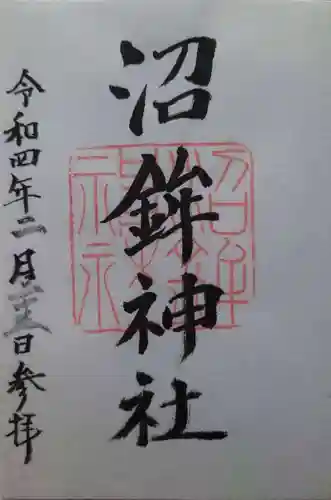 沼鉾神社
令和四年二月二十三日参拝